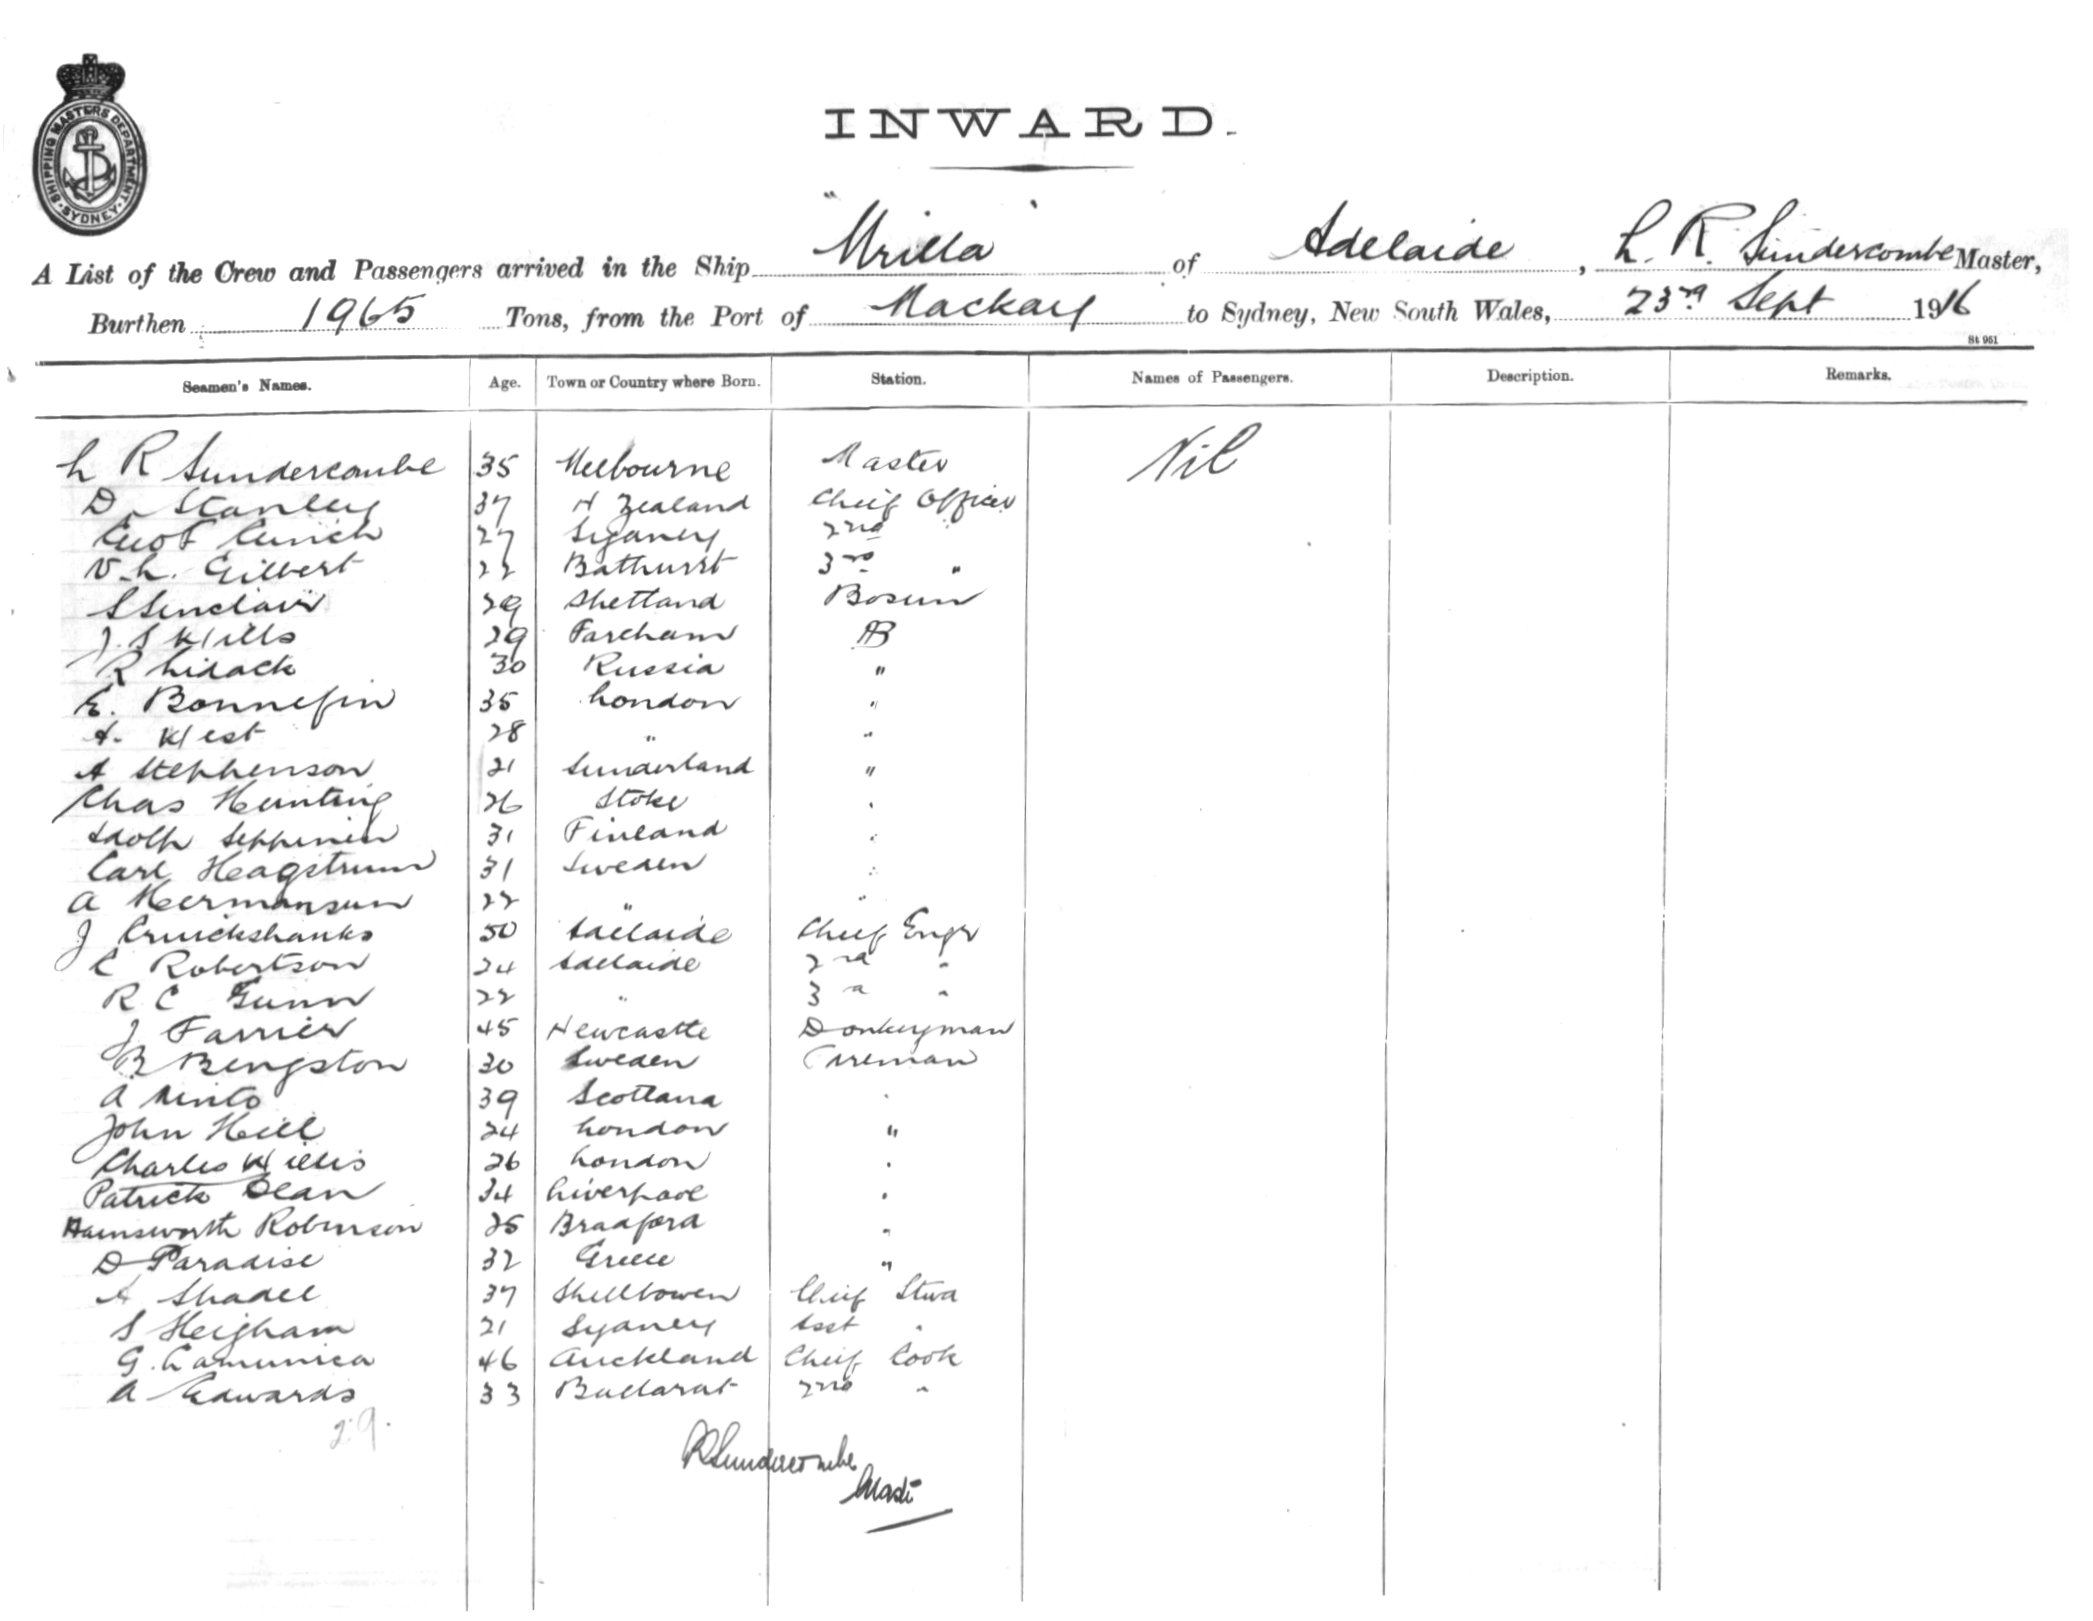 SHIPPING MASTERS DEPARTMENT · SYDNEY ·
INWARD.
A List of the Crew and Passengers arrived in the Ship "Urilla" of Adelaide, L. R. Sundercombe Master,
Burthen 1965 Tons, from the Port of Mackay to Sydney, New South Wales, 23rd Sept 1916
St 951
Seamen's Names. Age. Town or Country where Born. Station. Names of Passengers. Description. Remarks.
L R Sundercombe 35 Melbourne Master Nil
D Stanley 37 N Zealand Cheif Officer
27 Sydney 2nd "
V. L. Gilbert 22 Bathurst 3rd "
S Sinclair 29 Shetland Bosun
J. S Wills 29 Fareham AB
R 30 Russia "
E. Bonnefin 35 London "
A. West 28 " "
A Stephenson 21 Sunderland "
Chas Hunting 26 Stoke "
Adolh Seppinen 31 Finland "
Carl Heagstrum 31 Sweden "
A Hermansun 22 " "
J Cruickshanks 50 Adelaide Cheif Engr
C Robertson 24 Adelaide 2nd "
R C Gunn 22 " 3rd "
J Farrier 45 Newcastle Donkeyman
B Bengston 30 Sweden Fireman
A Minto 39 Scotland "
John Hill 24 London "
Charles Willis 26 London "
Patrick Dean 34 Liverpool "
Hainsworth Robinson 25 Bradford "
D Paradise 32 Greece "
A Shadel 37 Cheif Stwd
S Heigham 21 Sydney Asst "
G. 46 Auckland Cheif Cook
A Edwards 33 Ballarat 2nd "
29.
LRSundercombe
Master